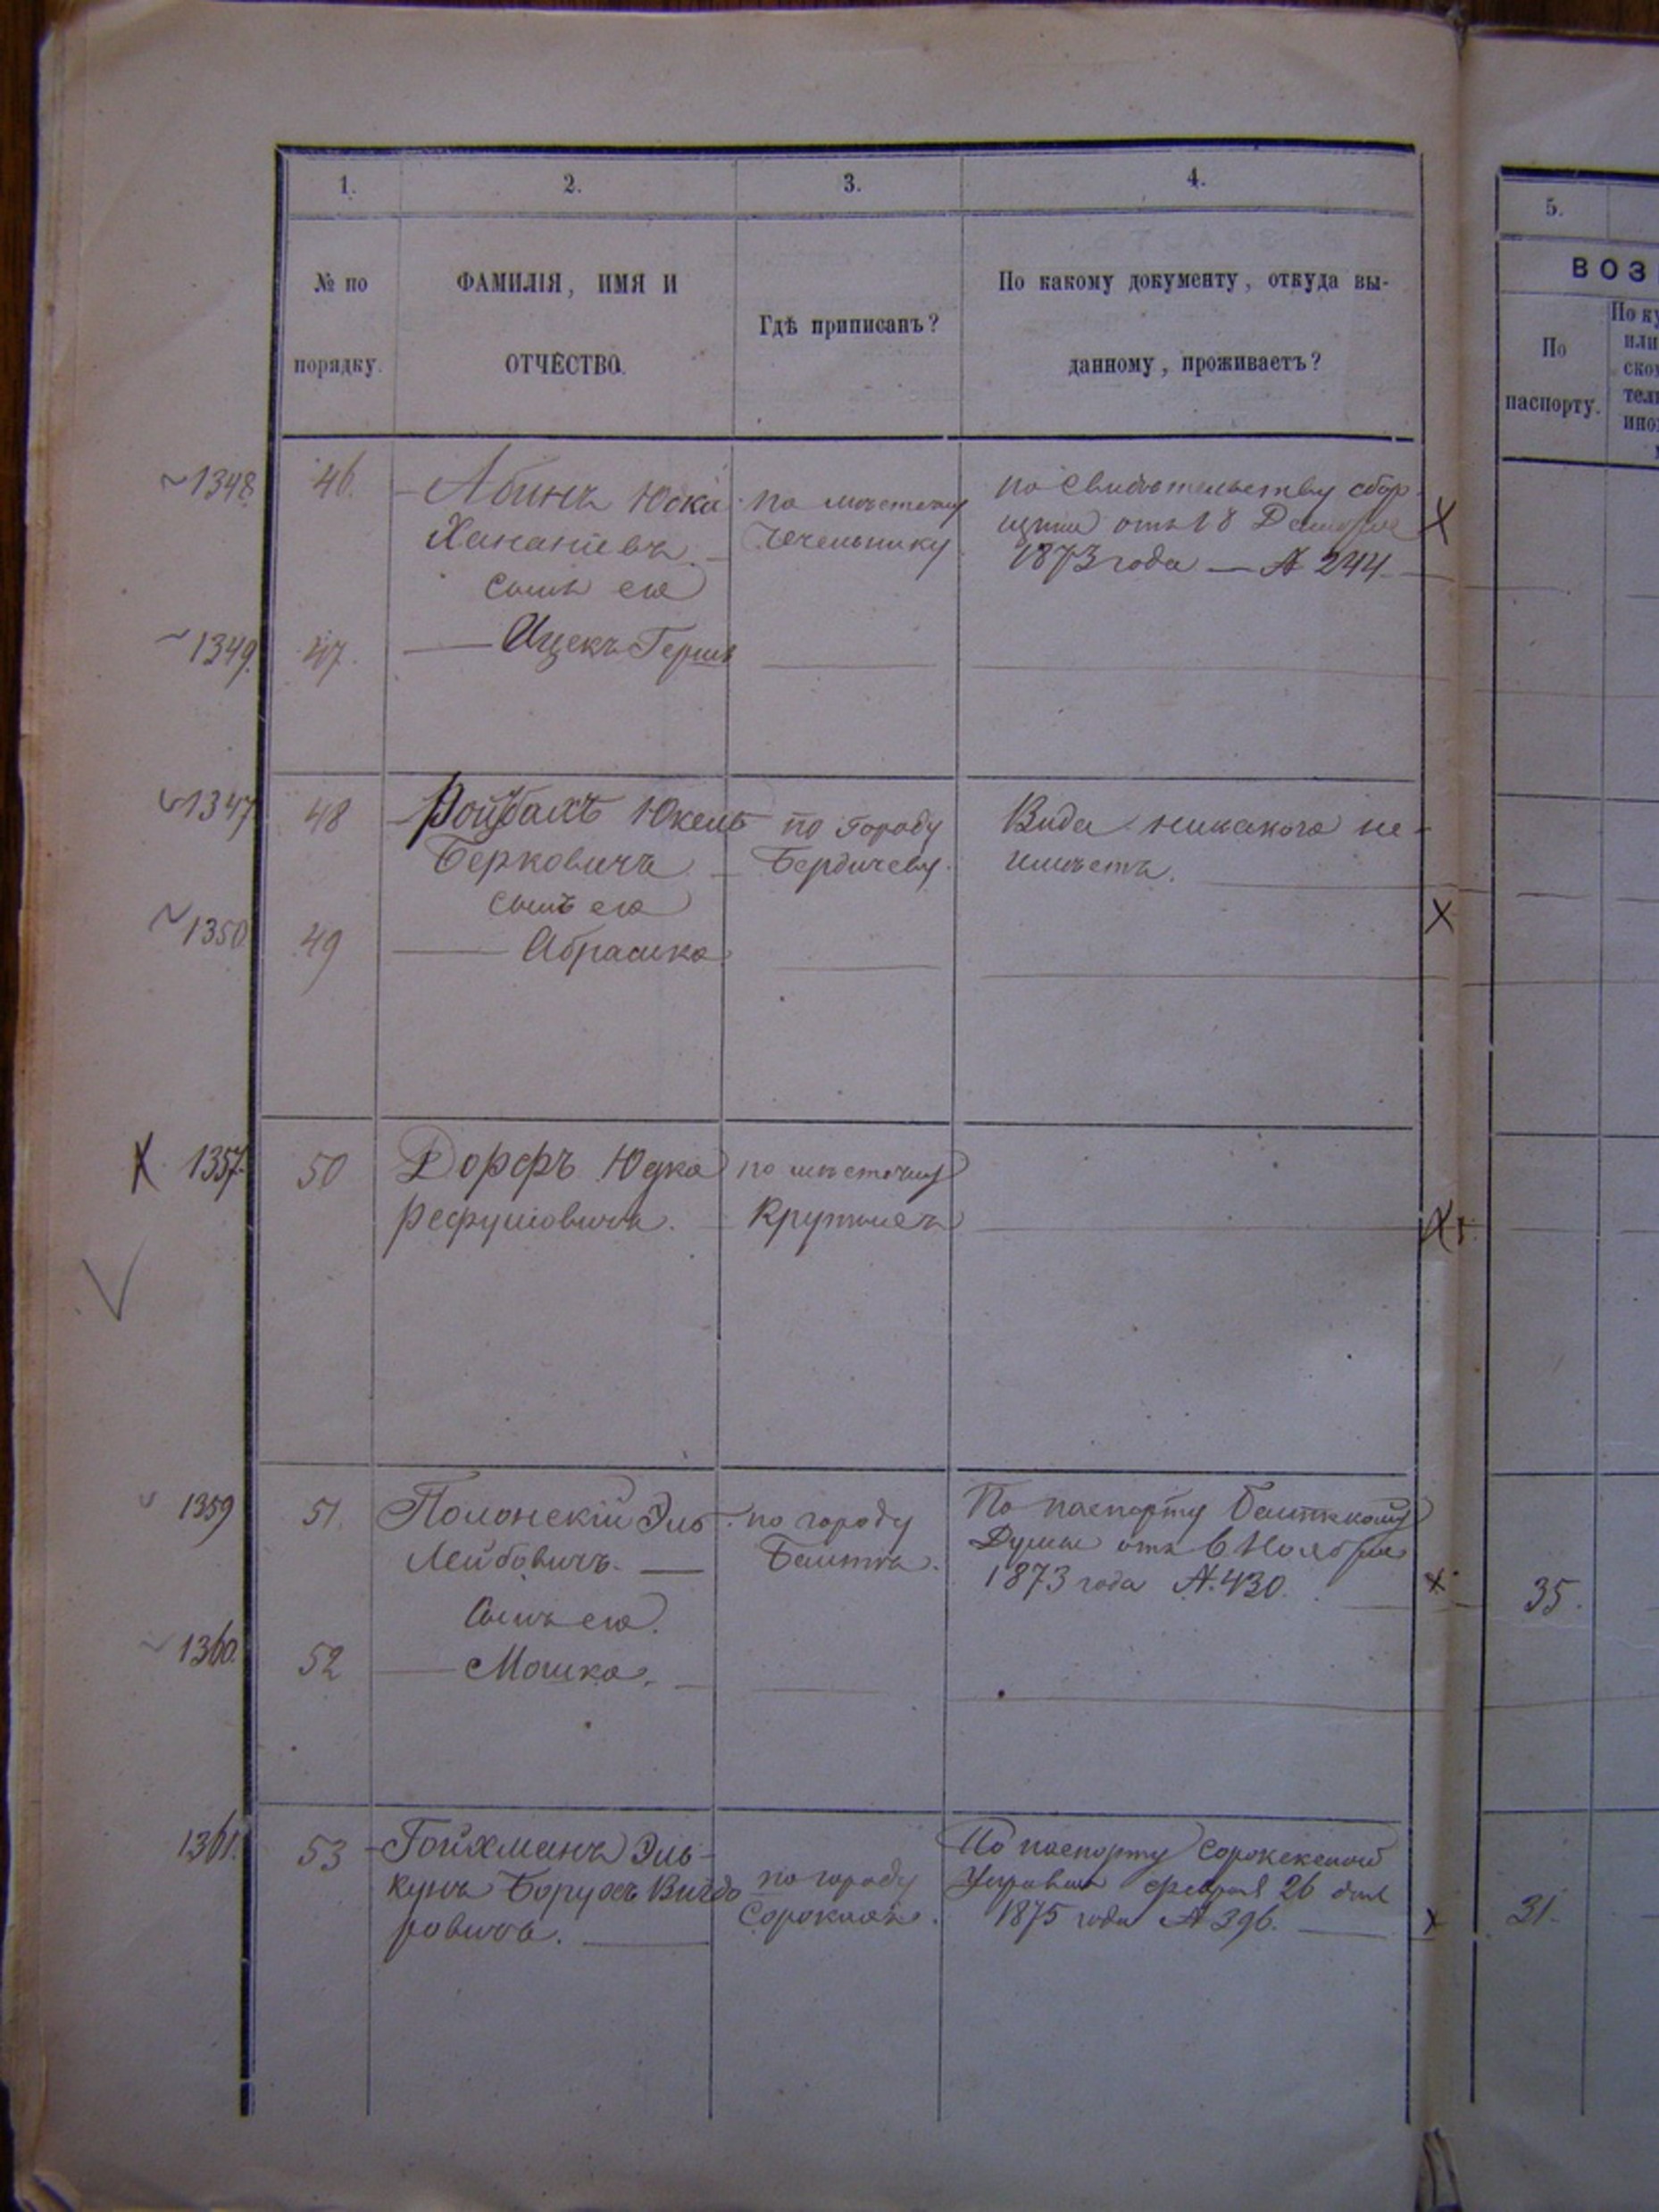 1. 2. 3. 4.
№ по порядку.
ФАМИЛІЯ, ИМЯ И
ОТЧЕСТВО.
Гдѣ приписанъ?
По какому документу, откуда вы-
данному, проживаетъ?
5.
ВОЗ
По
паспорту.
~1348 46.
Абинъ Юска
Хананіевъ
сынъ его
по мѣстечку
Чечельнику
по свидѣтельству сбор-
щика отъ 18 Декабря
1873 года — № 244
~1349. 47.
— Ицекъ Гершъ
1347 48
Ройзбахъ Юкель
Берковичъ
сынъ его
по городу
Бердичеву.
Вида никакого не
имѣетъ.
~1350 49
— Абрашка
1357. 50
Дорфъ Юдка
по мѣстечку
Крутыхъ
1359 51.
Полонскій Эль
Лейбовичъ. —
Сынъ его.
по городу
Балта.
По паспорту Балтской
Думы отъ 6 Ноября
1873 года №. 430.
35.
~1360. 52
— Мошка.
1361. 53
Гойхманъ Эль-
кунъ Борухъ Вигдо
ровичъ.
по городу
Сорокахъ.
По паспорту Сорокской
Управы февраля 26 дня
1875 года № 396.
31.